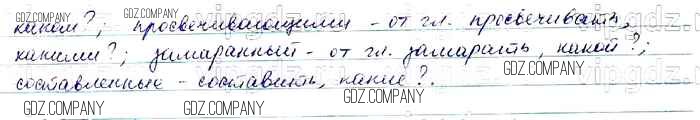 каком?; просвечивающими - от гл. просвечивать,
какими?; замаранный - от гл. замарать, какой?;
составленные - составить, какие?.
GDZ.COMPANY
GDZ.COMPANY GDZ.COMPANY GDZ.COMPANY GDZ.COMPANY